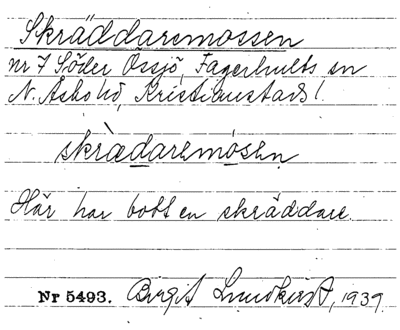 Skräddaremossen
nr 7 Söder Össjö, Fagerhults sn
N. Åsbo hd, Kristianstads l.
skràdaremósen
Här har bott en skräddare.
Nr 5493. Birgit Lundkvist, 1939